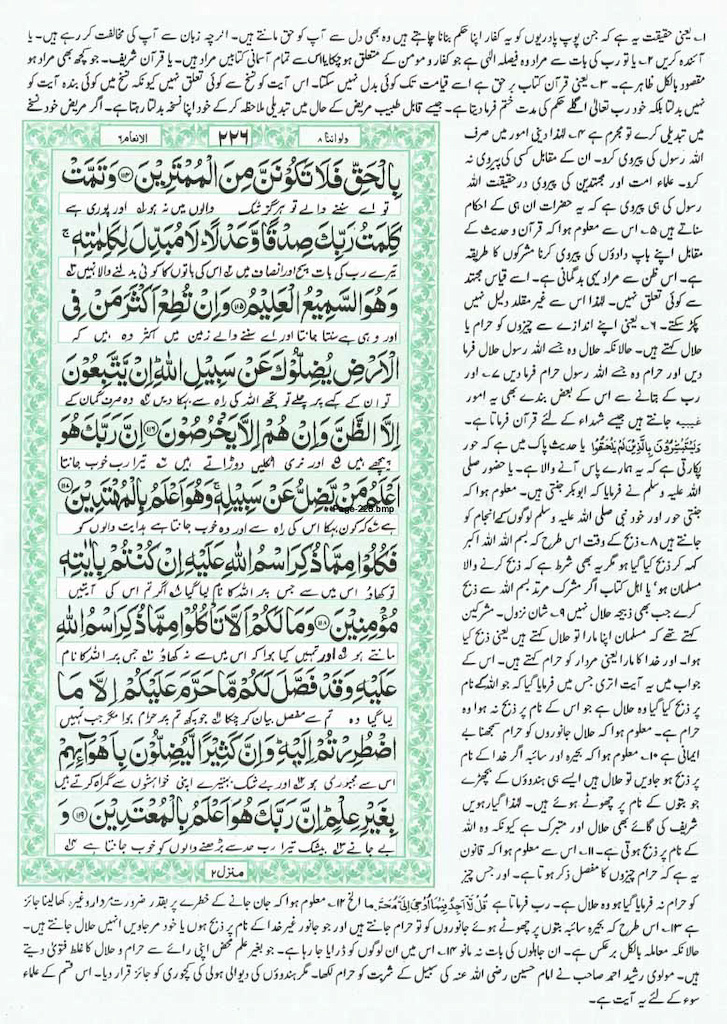 ۱۔ یعنی حقیقت یہ ہے کہ جن پوپ پادریوں کو یہ کفار اپنا حکم بنانا چاہتے ہیں وہ بھی دل سے آپ کو حق مانتے ہیں۔ اگرچہ زبان سے آپ کی مخالفت کر رہے ہیں۔ یا
آئندہ کریں ۲۔ یا تو رب کی بات سے مراد وہ فیصلہ الٰہی ہے جو کفار و مومن کے متعلق ہو چکا یا اس سے تمام آسمانی کتابیں مراد ہیں۔ یا قرآن شریف۔ جو کچھ بھی مراد ہو
مقصود بالکل ظاہر ہے۔ ۳۔ یعنی قرآن کتاب برحق ہے اسے قیامت تک کوئی بدل نہیں سکتا۔ اس آیت کو نسخ سے کوئی تعلق نہیں کیونکہ نسخ میں کوئی بندہ آیت کو
نہیں بدلتا بلکہ خود رب تعالیٰ اگلے حکم کی مدت ختم فرما دیتا ہے۔ جیسے قابل طبیب مریض کے حال میں تبدیلی ملاحظہ کر کے خود اپنا نسخہ بدلتا رہتا ہے۔ اگر مریض خود نسخے
میں تبدیلی کرے تو مجرم ہے ۴۔ لہٰذا دینی امور میں صرف
اللہ رسول کی پیروی کرو۔ ان کے مقابل کسی کی پیروی نہ
کرو۔ علماء امت اور مجتہدین کی پیروی درحقیقت اللہ
رسول کی ہی پیروی ہے کہ یہ حضرات ان ہی کے احکام
سناتے ہیں ۵۔ اس سے معلوم ہوا کہ قرآن و حدیث کے
مقابل اپنے باپ دادوں کی پیروی کرنا مشرکوں کا طریقہ
ہے۔ اس ظن سے مراد یہی بدگمانی ہے۔ اسے قیاس مجتہد
سے کوئی تعلق نہیں۔ لہٰذا اس سے غیر مقلد دلیل نہیں
پکڑ سکتے۔ ۶۔ یعنی اپنے اندازے سے چیزوں کو حرام یا
حلال کہتے ہیں۔ حالانکہ حلال وہ جسے اللہ رسول حلال فرما
دیں اور حرام وہ جسے اللہ رسول حرام فرما دیں ۷۔ اور
رب کے بتانے سے اس کے بعض بندے بھی یہ امور
غیبیہ جانتے ہیں جیسے شہداء کے لئے قرآن فرماتا ہے۔
وَیَسْتَبْشِرُوْنَ بِالَّذِیْنَ لَمْ یَلْحَقُوْا یا حدیث پاک میں ہے کہ حور
پکارتی ہے کہ یہ ہمارے پاس آنے والا ہے۔ یا حضور صلی
اللہ علیہ وسلم نے فرمایا کہ ابوبکر جنتی ہیں۔ معلوم ہوا کہ
جنتی حور اور خود نبی صلی اللہ علیہ وسلم لوگوں کے انجام کو
جانتے ہیں ۸۔ ذبح کے وقت اس طرح کہ بسم اللہ اللہ اکبر
کہہ کر ذبح کیا گیا ہو مگر یہ بھی شرط ہے کہ ذبح کرنے والا
مسلمان ہو‘ یا اہل کتاب اگر مشرک مرتد بسم اللہ سے ذبح
کرے جب بھی ذبیحہ حلال نہیں ۹۔ شان نزول۔ مشرکین
کہتے تھے کہ مسلمان اپنا مارا تو حلال کہتے ہیں یعنی ذبح کیا
ہوا۔ اور خدا کا مارا یعنی مردار کو حرام کہتے ہیں۔ اس کے
جواب میں یہ آیت اتری جس میں فرمایا گیا کہ جو اللہ کے نام
پر ذبح کیا گیا وہ حلال ہے جو اس کے نام پر ذبح نہ ہوا وہ
حرام ہے۔ معلوم ہوا کہ حلال جانوروں کو حرام سمجھنا بے
ایمانی ہے ۱۰۔ معلوم ہوا کہ بحیرہ اور سائبہ اگر خدا کے نام
پر ذبح ہو جاویں تو حلال ہیں ایسے ہی ہندوؤں کے بچھڑے
جو بتوں کے نام پر چھوٹے ہوئے ہیں۔ لہٰذا گیارہویں
شریف کی گائے بھی حلال اور متبرک ہے کیونکہ وہ اللہ
کے نام پر ذبح ہوتی ہے۔ ۱۱۔ اس سے معلوم ہوا کہ قانون
یہ ہے کہ حرام چیزوں کا مفصل ذکر ہوتا ہے۔ اور جس چیز
ولواننا ۸
۲۲۶
الانعام ۶
بِالْحَقِّ فَلَا تَكُوْنَنَّ مِنَ الْمُمْتَرِيْنَ ۝۱۱۴ وَتَمَّتْ
تو اے سننے والے تو ہرگز شک والوں میں نہ ہو اور پوری ہے
كَلِمَتُ رَبِّكَ صِدْقًا وَّعَدْلًا ؕ لَا مُبَدِّلَ لِكَلِمٰتِهٖ ۚ
تیرے رب کی بات سچ اور انصاف میں اس کی باتوں کا کوئی بدلنے والا نہیں
وَهُوَ السَّمِيْعُ الْعَلِيْمُ ۝۱۱۵ وَاِنْ تُطِعْ اَكْثَرَ مَنْ فِى
اور وہی ہے سنتا جانتا اور اے سننے والے زمین میں اکثر وہ ہیں کہ
الْاَرْضِ يُضِلُّوْكَ عَنْ سَبِيْلِ اللّٰهِ ؕ اِنْ يَّتَّبِعُوْنَ
تو ان کے کہے پر چلے تو تجھے اللہ کی راہ سے بہکا دیں وہ صرف گمان کے
اِلَّا الظَّنَّ وَاِنْ هُمْ اِلَّا يَخْرُصُوْنَ ۝۱۱۶ اِنَّ رَبَّكَ هُوَ
پیچھے ہیں اور نری اٹکلیں دوڑاتے ہیں تیرا رب خوب جانتا
اَعْلَمُ مَنْ يَّضِلُّ عَنْ سَبِيْلِهٖ ۚ وَهُوَ اَعْلَمُ بِالْمُهْتَدِيْنَ ۝۱۱۷
Page-226.bmp
ہے کہ کون بہکا اس کی راہ سے اور وہ خوب جانتا ہے ہدایت والوں کو
فَكُلُوْا مِمَّا ذُكِرَ اسْمُ اللّٰهِ عَلَيْهِ اِنْ كُنْتُمْ بِاٰيٰتِهٖ
تو کھاؤ اس میں سے جس پر اللہ کا نام لیا گیا اگر تم اس کی آیتیں
مُؤْمِنِيْنَ ۝۱۱۸ وَمَا لَكُمْ اَلَّا تَاْكُلُوْا مِمَّا ذُكِرَ اسْمُ اللّٰهِ
مانتے ہو اور تمہیں کیا ہوا کہ اس میں سے نہ کھاؤ جس پر اللہ کا نام
عَلَيْهِ وَقَدْ فَصَّلَ لَكُمْ مَّا حَرَّمَ عَلَيْكُمْ اِلَّا مَا
لیا گیا وہ تم سے مفصل بیان کر چکا جو کچھ تم پر حرام ہوا مگر جب تمہیں
اضْطُرِرْتُمْ اِلَيْهِ ؕ وَاِنَّ كَثِيْرًا لَّيُضِلُّوْنَ بِاَهْوَآئِهِمْ
اس سے مجبوری ہو اور بے شک بہتیرے اپنی خواہشوں سے گمراہ کرتے ہیں
بِغَيْرِ عِلْمٍ ؕ اِنَّ رَبَّكَ هُوَ اَعْلَمُ بِالْمُعْتَدِيْنَ ۝۱۱۹ وَ
بے جانے بیشک تیرا رب حد سے بڑھنے والوں کو خوب جانتا ہے
منزل ۲
کو حرام نہ فرمایا گیا ہو وہ حلال ہے۔ رب فرماتا ہے قُلْ لَّآ اَجِدُ فِیْمَآ اُوْحِیَ اِلَیَّ مُحَرَّمًا الخ ۱۲۔ معلوم ہوا کہ جان جانے کے خطرے پر بقدر ضرورت مردار وغیرہ کھا لینا جائز
ہے ۱۳۔ اس طرح کہ بحیرہ سائبہ بتوں پر چھوٹے ہوئے جانوروں کو تو حرام جانتے ہیں اور جو جانور غیر خدا کے نام پر ذبح ہوں یا خود مر جاویں انہیں حلال جانتے ہیں۔
حالانکہ معاملہ بالکل برعکس ہے۔ ان جاہلوں کی بات نہ مانو ۱۴۔ اس میں ان لوگوں کو ڈرایا جا رہا ہے۔ جو بغیر علم محض اپنی رائے سے حرام و حلال کا غلط فتویٰ دیتے
ہیں۔ مولوی رشید احمد صاحب نے امام حسین رضی اللہ عنہ کی سبیل کے شربت کو حرام لکھا۔ مگر ہندوؤں کی دیوالی ہولی کی کچوری کو جائز قرار دیا۔ اس قسم کے علماء
سوء کے لئے یہ آیت ہے۔